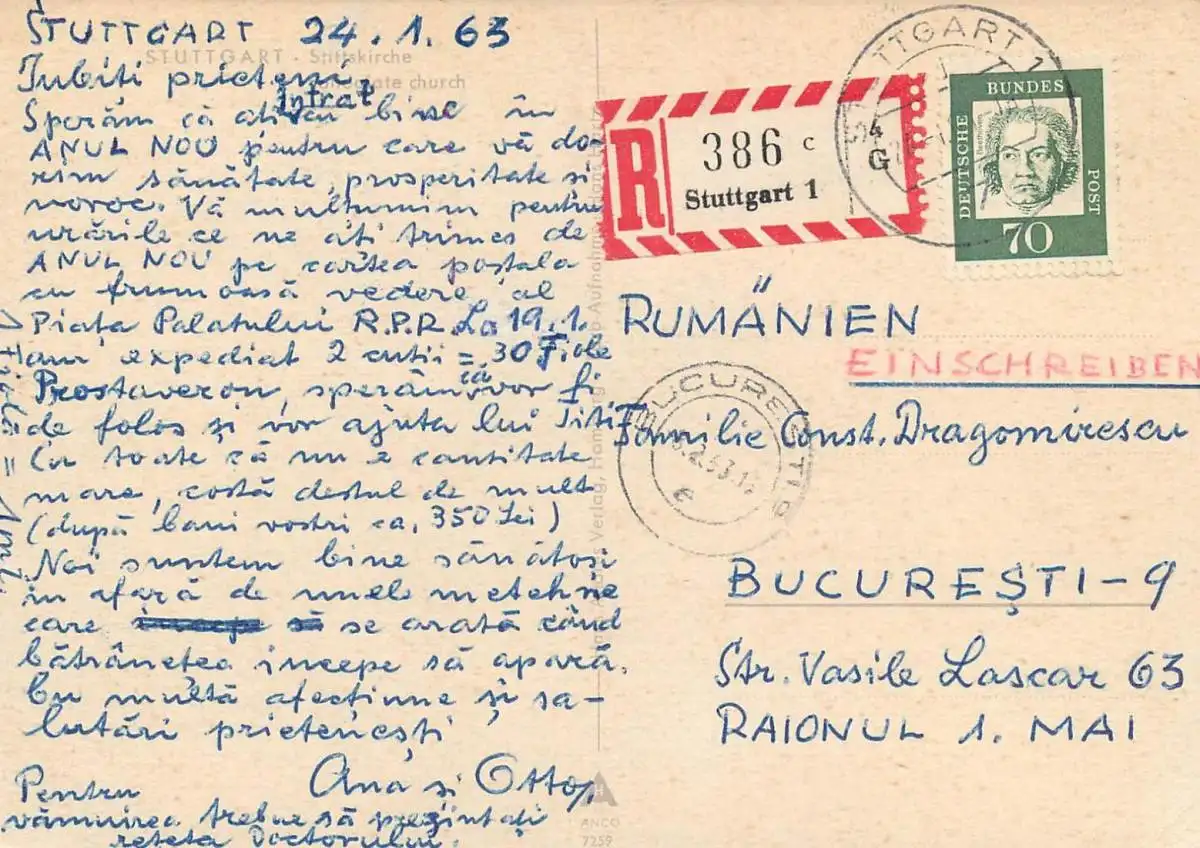 STUTTGART 24.1.63
STUTTGART - Stiftskirche
Collegiate church
Iubiti prieteni
Sperăm că ati intrat cu bine în
ANUL NOU pentru care vă do-
rim sănătate, prosperitate si
noroc. Vă multumim pentru
urările ce ne ati trimes de
ANUL NOU pe cartea postala
cu frumoasă vedere, al
Piața Palatului R.P.R. La 19.1.
am expediat 2 cutii = 30 Fiole
Prostaveron, sperăm că vor fi
de folos și vor ajuta lui Titi
Cu toate că nu e cantitate
mare, costă destul de mult
(după bani vostri ca. 350 Lei)
Noi suntem bine sănătosi
in afară de unele metehne
care se arată când
bătrânețea incepe să apară.
Cu multă afecțiune și sa-
lutări prietenești
Ana și Otto
Pentru
vămuirea trebue să prezintați
reteta Doctorului.
1 Fiola = 1 ml.
R
386 c
Stuttgart 1
STUTTGART 1
4
G
DEUTSCHE BUNDESPOST
70
RUMÄNIEN
EINSCHREIBEN
BUCUREȘTI
e
Familie Const. Dragomirescu
BUCUREȘTI-9
Str. Vasile Lascar 63
RAIONUL 1. MAI
ANCO
7259